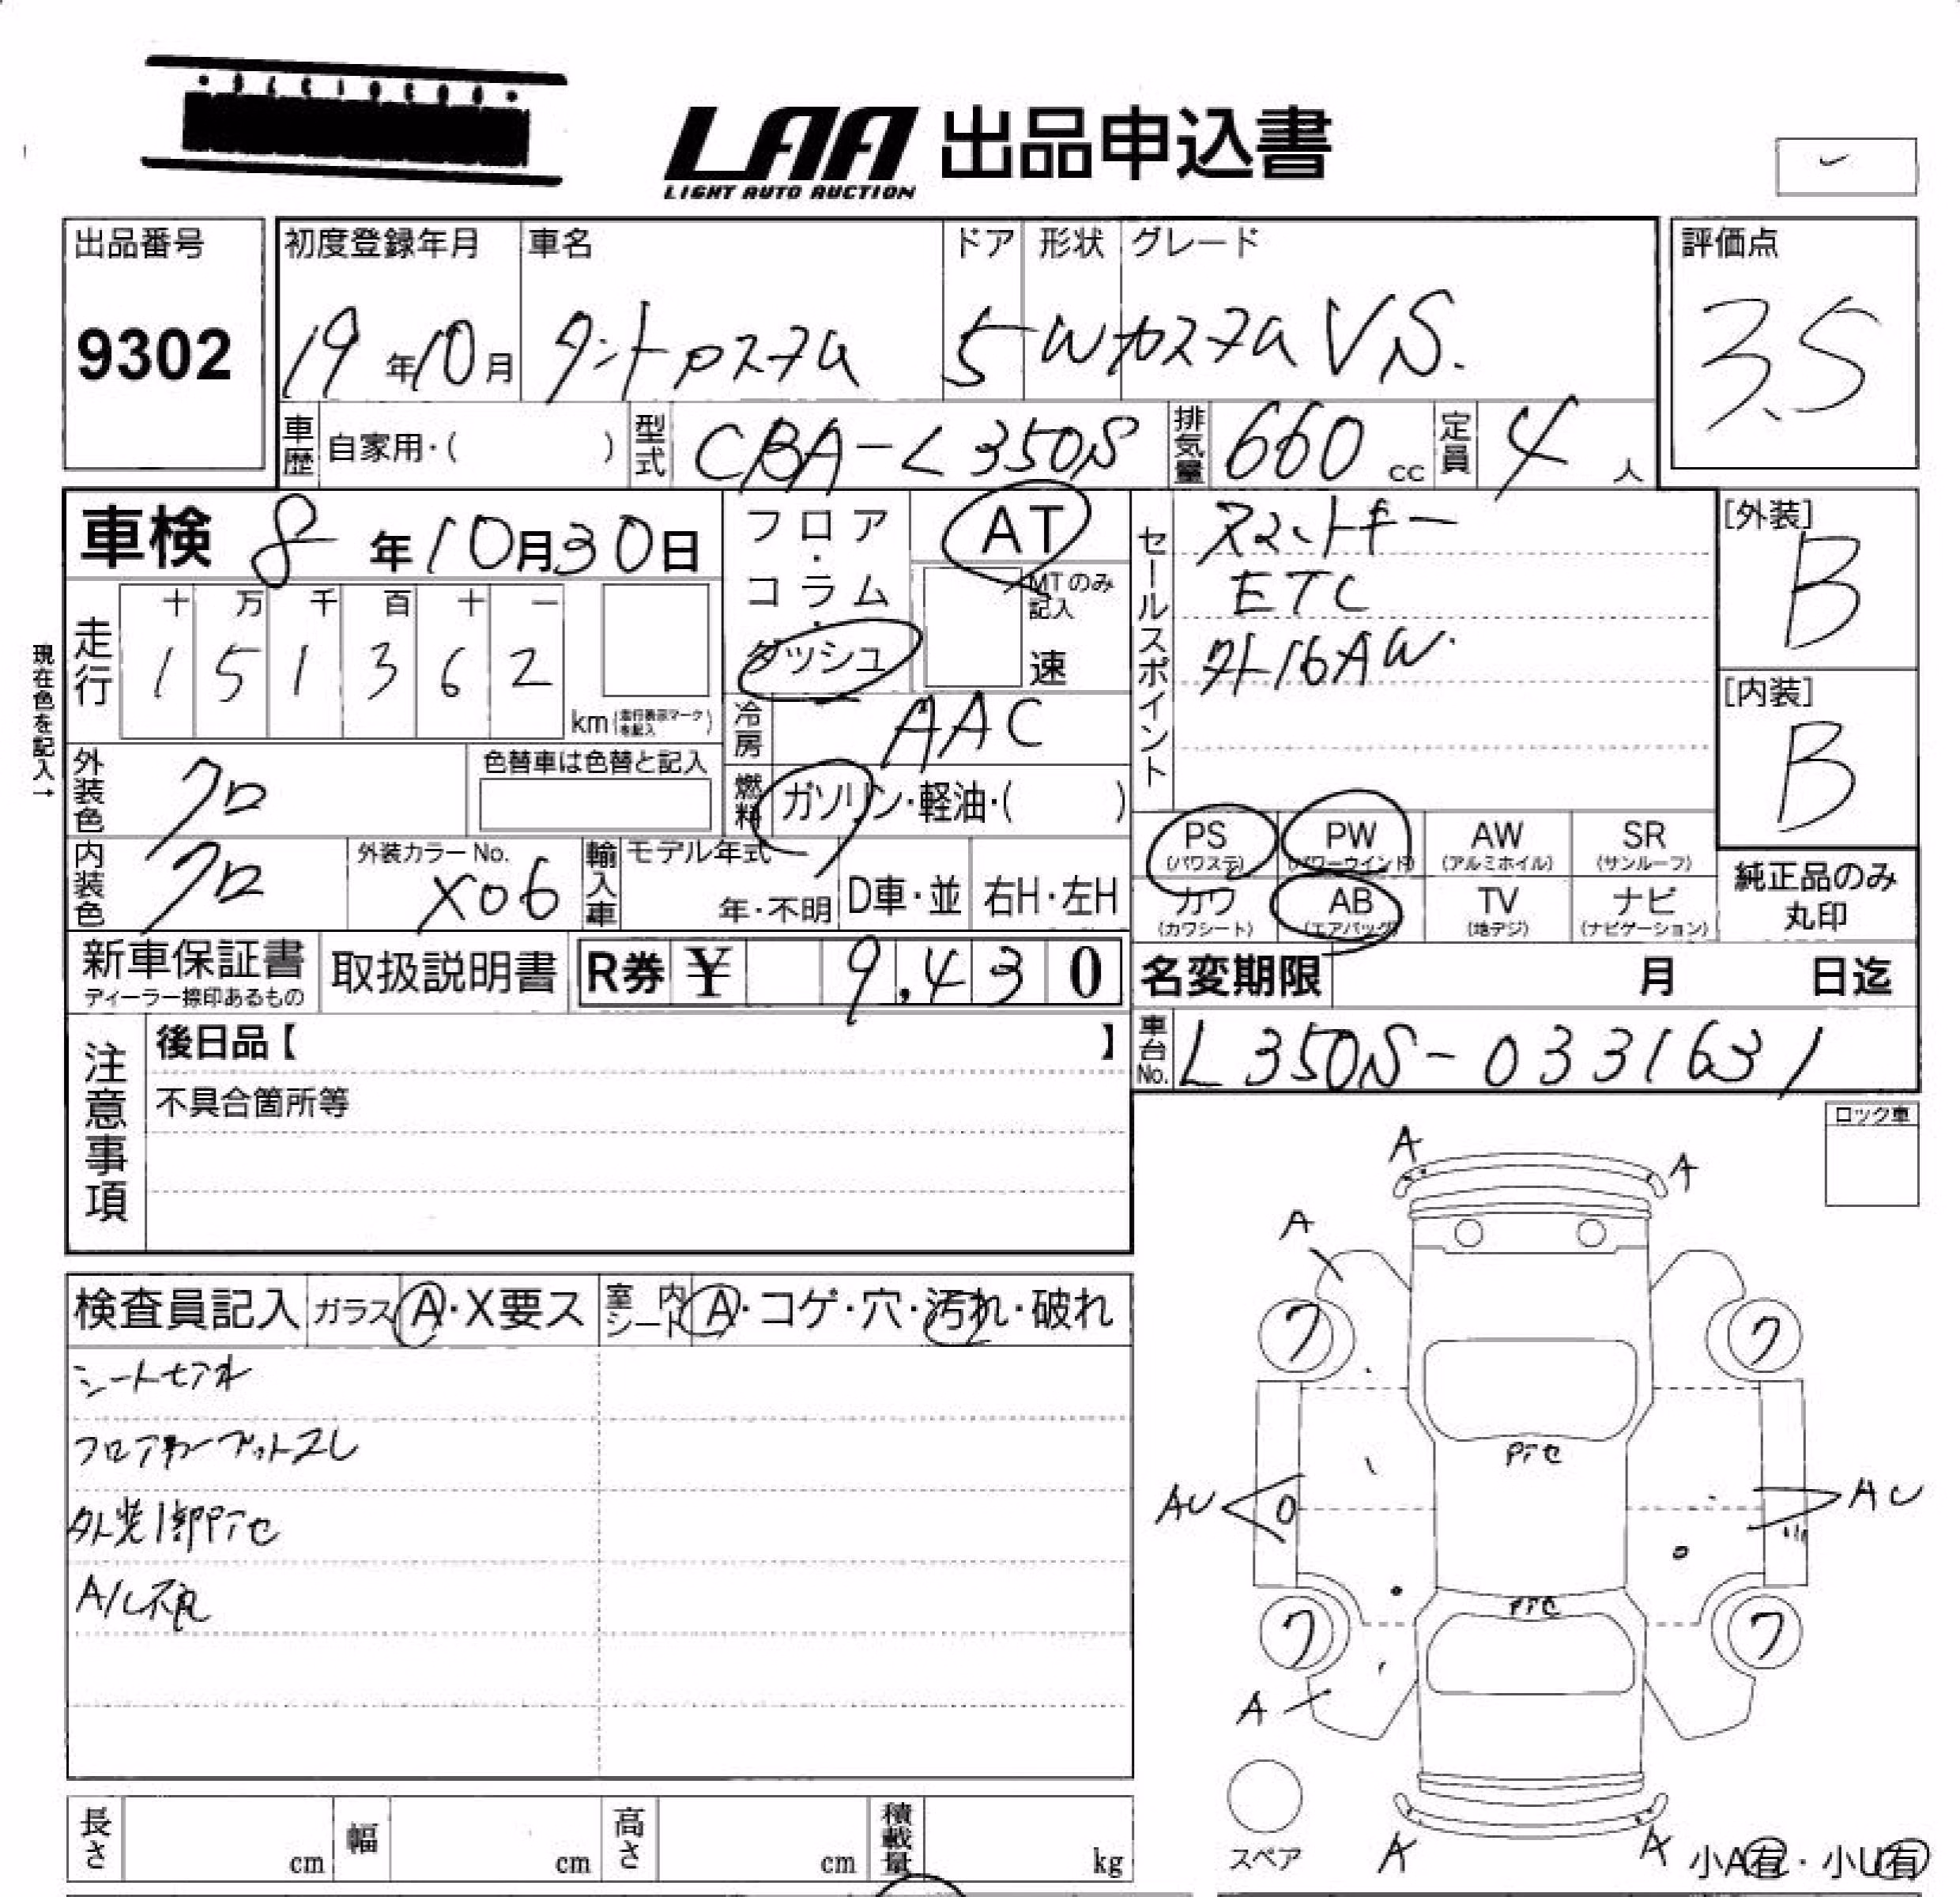 LAA 出品申込書
LIGHT AUTO AUCTION
出品番号 初度登録年月 車名 ドア 形状 グレード 評価点
9302 19年10月 タントカスタム 5 W カスタムVS. 3.5
車歴 自家用・( ) 型式 CBA-L350S 排気量 660cc 定員 4人
車検 8年10月30日 フロア・コラム・ダッシュ AT MTのみ記入 速
セールスポイント
スマートキー
ETC
外16AW
[外装]
B
[内装]
B
現在色を記入→
走行 十 万 千 百 十 一
1 5 1 3 6 2 km(走行表示マークを記入)
冷房 AAC
外装色 クロ 色替車は色替と記入
燃料 ガソリン・軽油・( )
内装色 クロ 外装カラーNo. X06 輸入車 モデル年式 年・不明 D車・並 右H・左H
PS (パワステ) PW (パワーウインド) AW (アルミホイル) SR (サンルーフ)
カワ (カワシート) AB (エアバッグ) TV (地デジ) ナビ (ナビゲーション)
純正品のみ
丸印
新車保証書 ディーラー捺印あるもの 取扱説明書 R券 ¥ 9,430
名変期限 月 日迄
車台No. L350S-0331631
注意事項
後日品【 】
不具合箇所等
ロック車
検査員記入 ガラス A・X要ス 室内シート A・コゲ・穴・汚れ・破れ
シートセアホ
フロアカーペットスレ
外装1部Pアセ
A/C不良
A A
A
ワ ワ
Pアセ
AU AU
Pアセ
ワ ワ
A
A A
スペア
小A有・小U有
長さ cm 幅 cm 高さ cm 積載量 kg